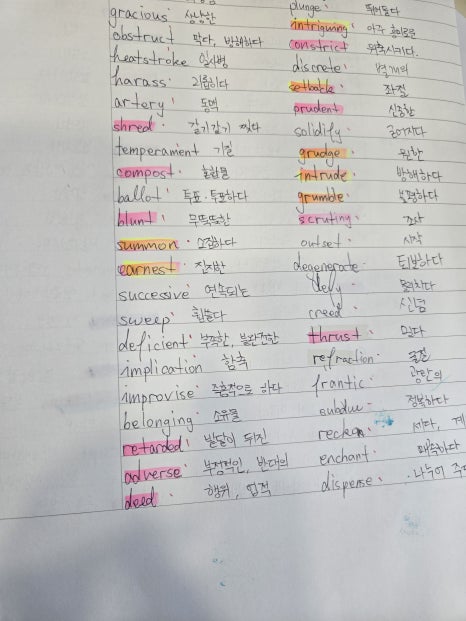 gracious 상냥한
obstruct 막다, 방해하다
heatstroke 일사병
harass 괴롭히다
artery 동맥
shred 갈기갈기 찢다
temperament 기질
compost 혼합물
ballot 투표·투표하다
blunt 무뚝뚝한
summon 소집하다
earnest 진지한
successive 연속되는
sweep 휩쓸다
deficient 부족한, 불완전한
implication 함축
improvise 즉흥적으로 하다
belonging 소유물
retarded 발달이 뒤진
adverse 부정적인, 반대의
deed 행위, 업적
plunge 뛰어들다
intriguing 아주 흥미로운
constrict 위축시키다.
discrete 별개의
setback 좌절
prudent 신중한
solidify 굳어지다
grudge 원한
intrude 방해하다
grumble 불평하다
scrutiny 조사
outset 시작
degenerate 퇴보하다
defy
creed 신념
thrust 밀다
refraction 굴절
frantic 광란의
subdue 정복하다
reckon 세다,
enchant 매혹하다
dispense 나누어